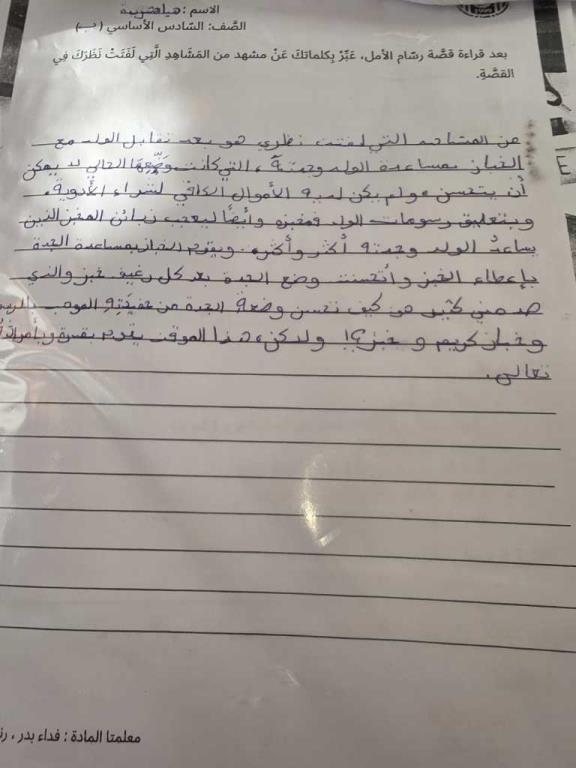 الاسم :
الصَّف: السّادس الأساسي (ب)
بعد قراءة قصَّة رسّام الأمل، عَبِّرْ بِكلماتكَ عَنْ مشهد من المَشَاهِدِ الَّتِي لَفَتَتْ نَظَرَكَ فِي
القصَّةِ.
من المشاهد التي لفتت نظري هو بعد تقابل الولد مع
الخباز بمساعدة الولد وجدتة ، التي كانت وَضْعِها الحالي لا يمكن
أن يتحسن لم يكن لديه الأموال الكافي لشراء الأدوية،
وبتعليق رسومات الولد وأيضًا ليعجب زبائن المخبز الذين
يساعدُ الولد وجدته أكثر وأكثر، ويقوم الخباز بمساعدة الجدة
بإعطاء الخبز وأتحسنت وضع الجدة بعد كل رغيف خبز والذي
صدمني كثير هي كيف تحسن وضعة الجدة من الموت
وخباز كريم و خبز؟! ولكن، هذا الموقف يقدم
تعالى.
معلمتا المادة : فداء بدر ،